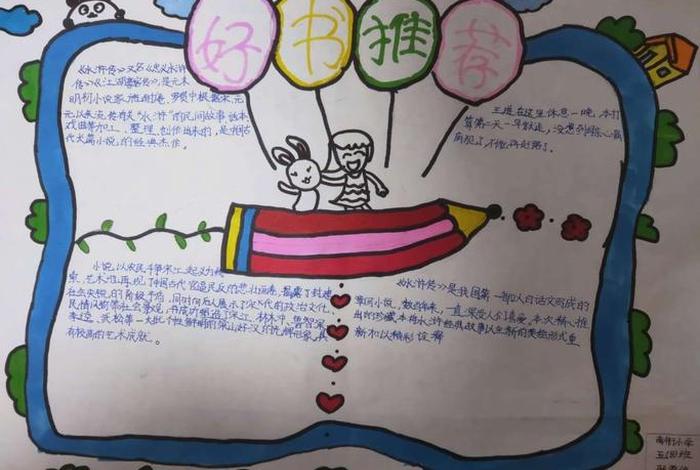 好书推荐
《水浒传》又名《忠义水浒
传》《江湖豪客传》,是元末
明初小说家施耐庵、罗贯中根据宋、元
元以来流传有关"水浒"的民间故事话本、
戏曲等加工、整理、创作而来的,是中国古
代长篇小说的经典杰作。
王进在这里休息一晚,本打
算第二天一早就走,没想到
小说以农民斗争宋江起义为线
索,艺术地再现了中国古代
民起义反的悲壮画卷,揭露了封建
社会
的阶级矛盾,同时向后人展示了宋代的政治文化、
民情风俗等社会景观,
塑造了宋江、林冲、鲁智深、
李逵、武松等一大批个性鲜明的梁山好汉
形象,具
有较高的艺术成就。
《水浒传》是我国第一部以白话文写成的
章回小说,数百年来,一直深受人们喜爱。本次精心推
出的珍藏本将水浒经典故事以全新的美绘形式重
新加以精彩诠释
南街小学
五四班